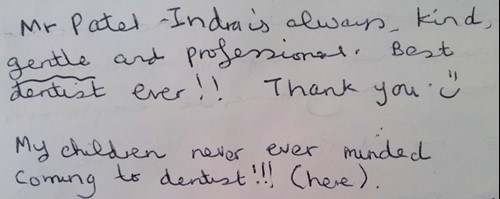 Mr Patel - Indra is always kind,
gentle and professional. Best
dentist ever!! Thank you :)
My children never ever minded
coming to dentist!!! (here).